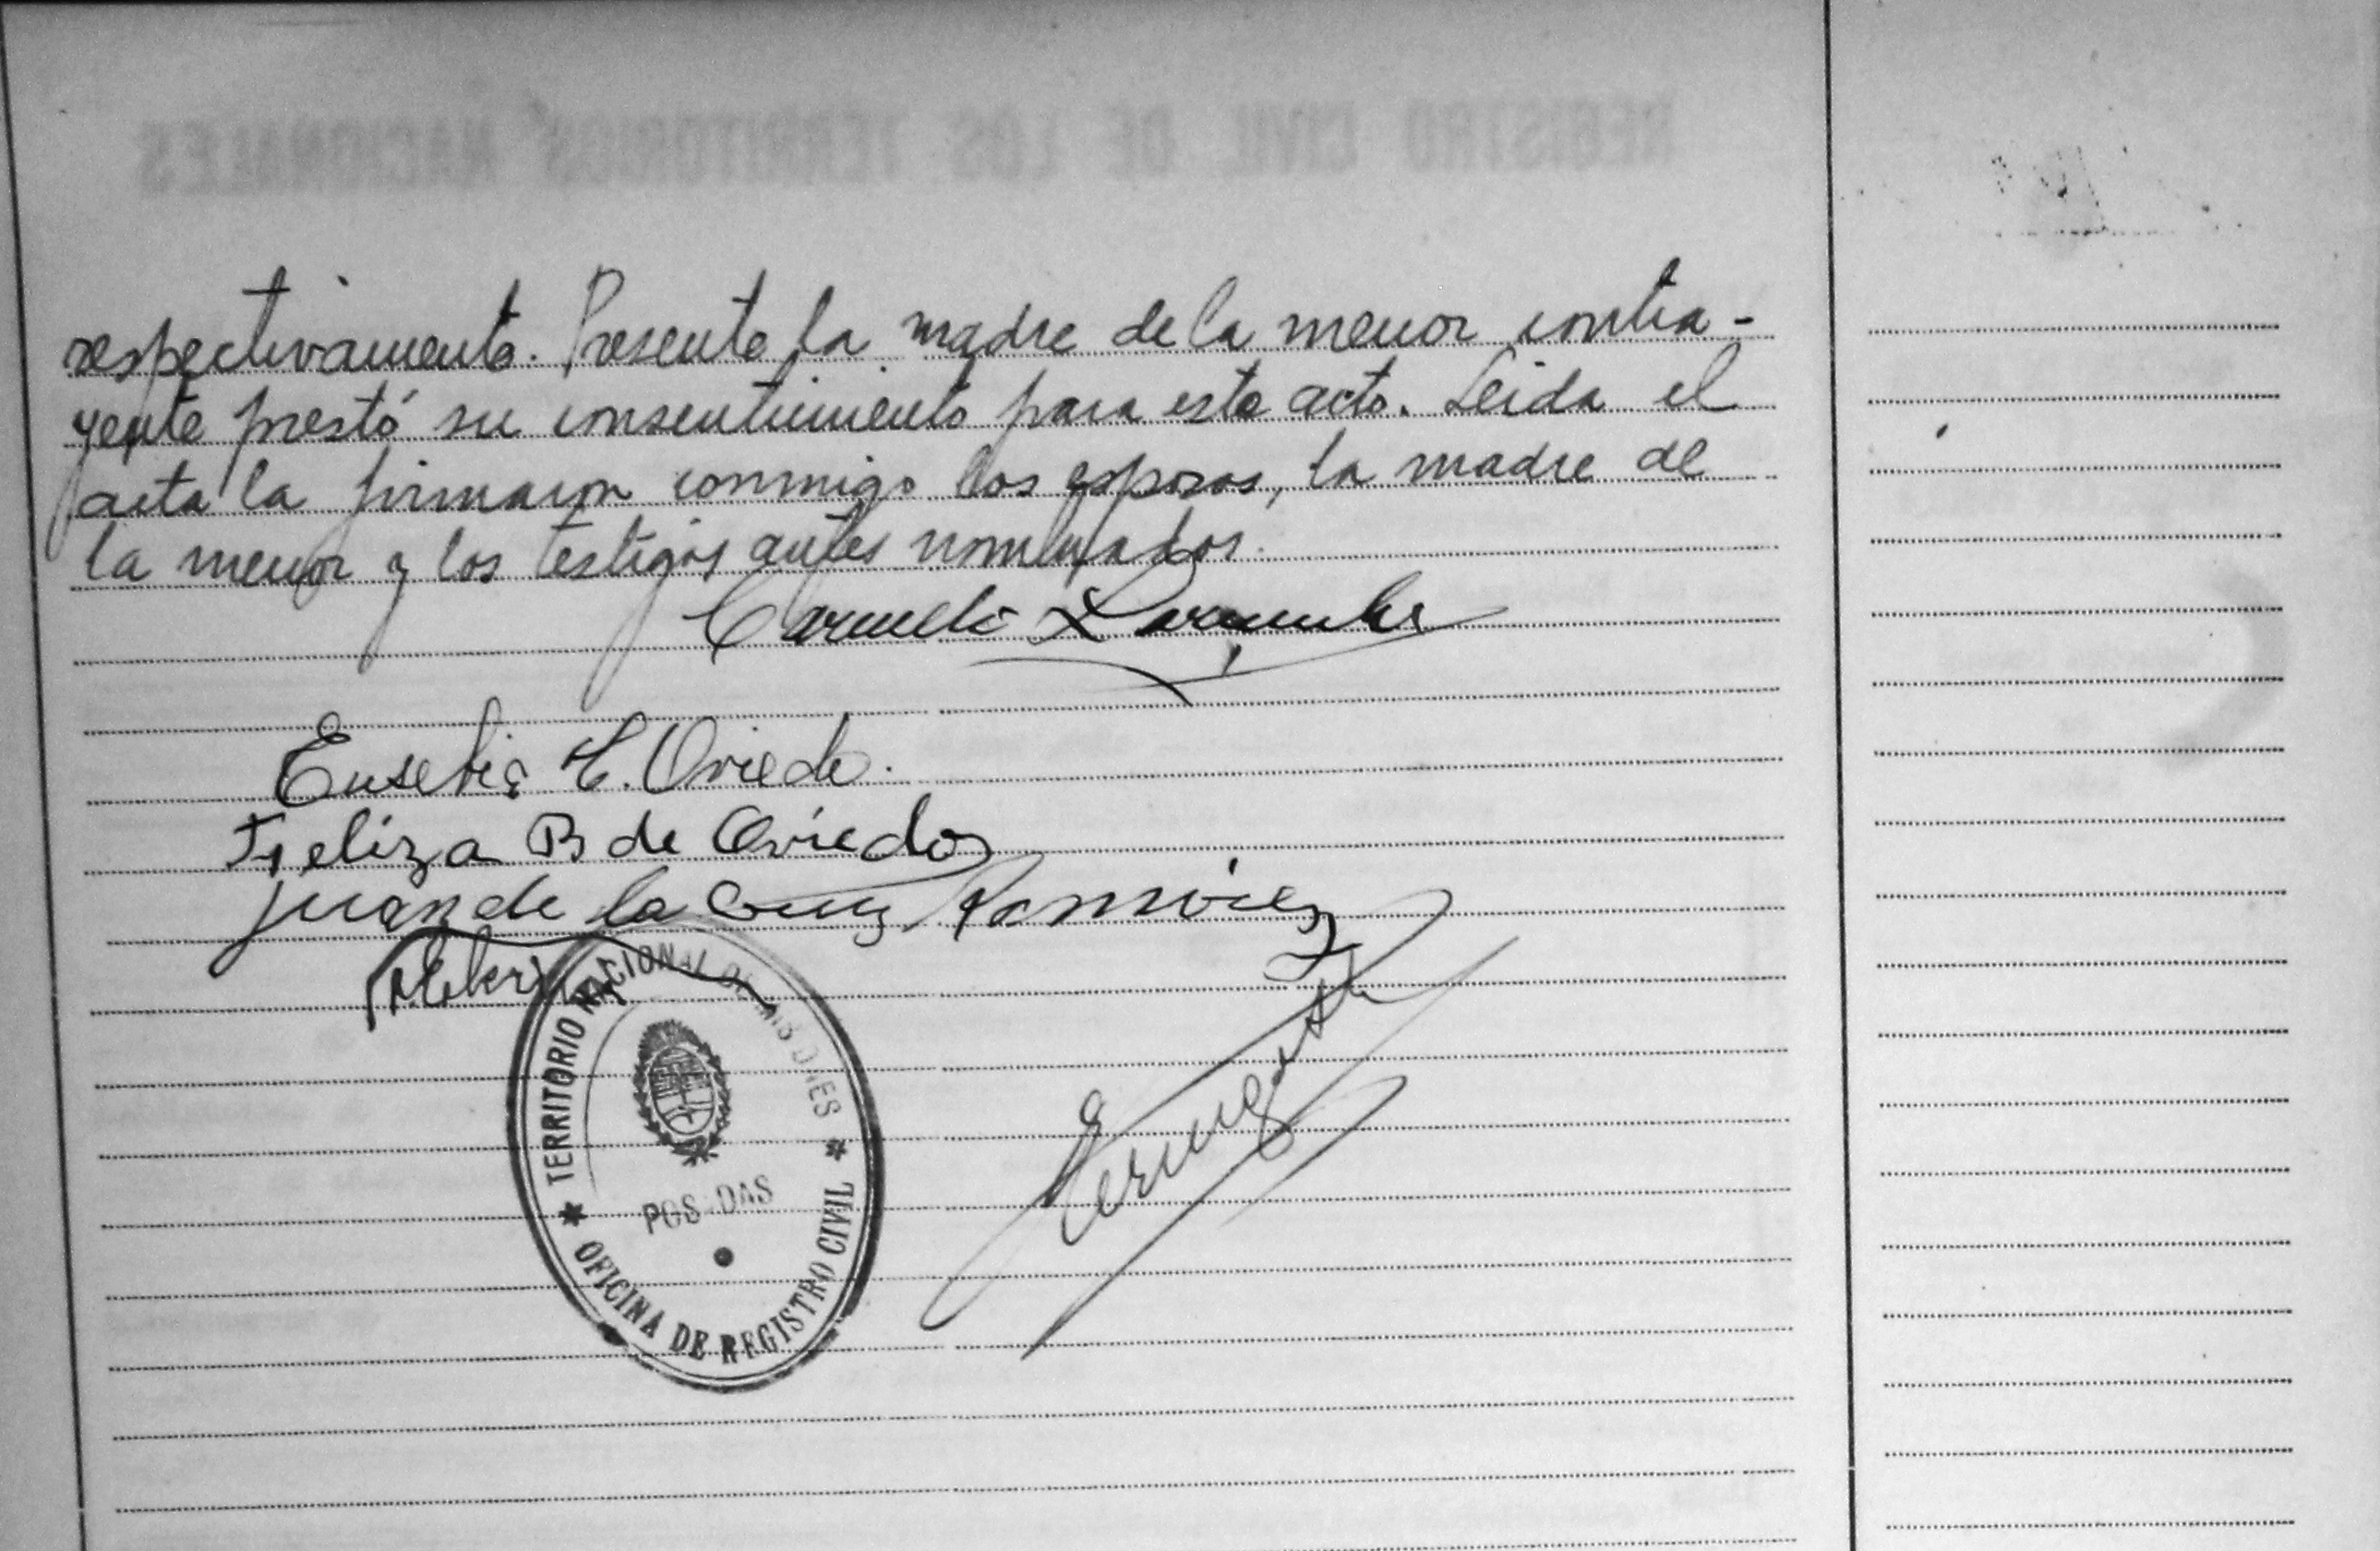 REGISTRO CIVIL DE LOS TERRITORIOS NACIONALES
respectivamente. Presente la madre de la menor contra-
yente prestó su consentimiento para este acto. Leida el
acta la firmaron conmigo los esposos, la madre de
la menor y los testigos antes nombrados.
Eusebia H. Oviedo.
Feliza B de Oviedo
Juan de la Cruz Ramirez
TERRITORIO NACIONAL DE MISIONES
POSADAS
OFICINA DE REGISTRO CIVIL